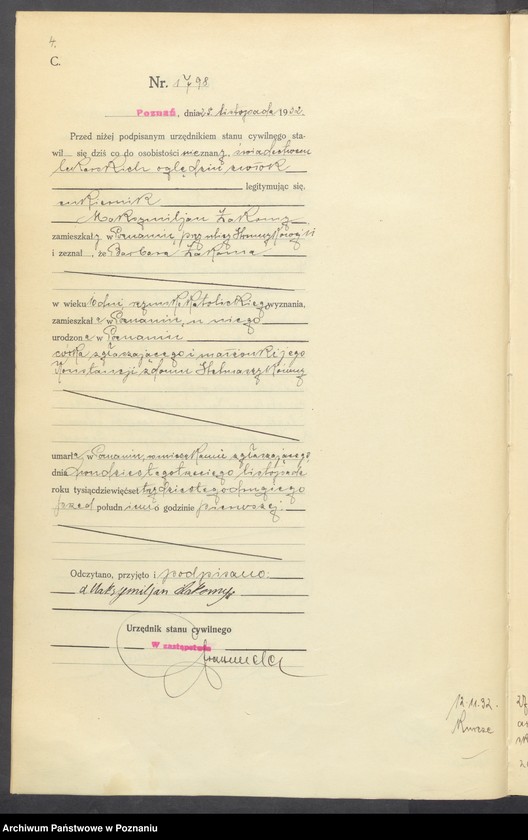 4.
C.
Nr. 1798
Poznań, dnia 22 listopada 1932.
Przed niżej podpisanym urzędnikiem stanu cywilnego sta-
wił się dziś co do osobistości nieznany, świadectwem
lekarskich oględzin zwłok
legitymując się,
cukiernik
Maksymiljan Łakomy
zamieszkały w Poznaniu, przy ulicy
i zeznał, że Barbara Łakoma
w wieku 6 dni, rzymsko katolickiego wyznania,
zamieszkała w Poznaniu, u niego
urodzona w Poznaniu
córka zgłaszającego i małżonki jego
Konstancji z domu
umarła w Poznaniu, w mieszkaniu zgłaszającego
dnia listopada
roku tysiącdziewięćset trzydziestego drugiego
przed południem o godzinie pierwszej.
Odczytano, przyjęto i podpisano
Maksymiljan Łakomy
Urzędnik stanu cywilnego
W zastępstwie
12.11.32.
Archiwum Państwowe w Poznaniu